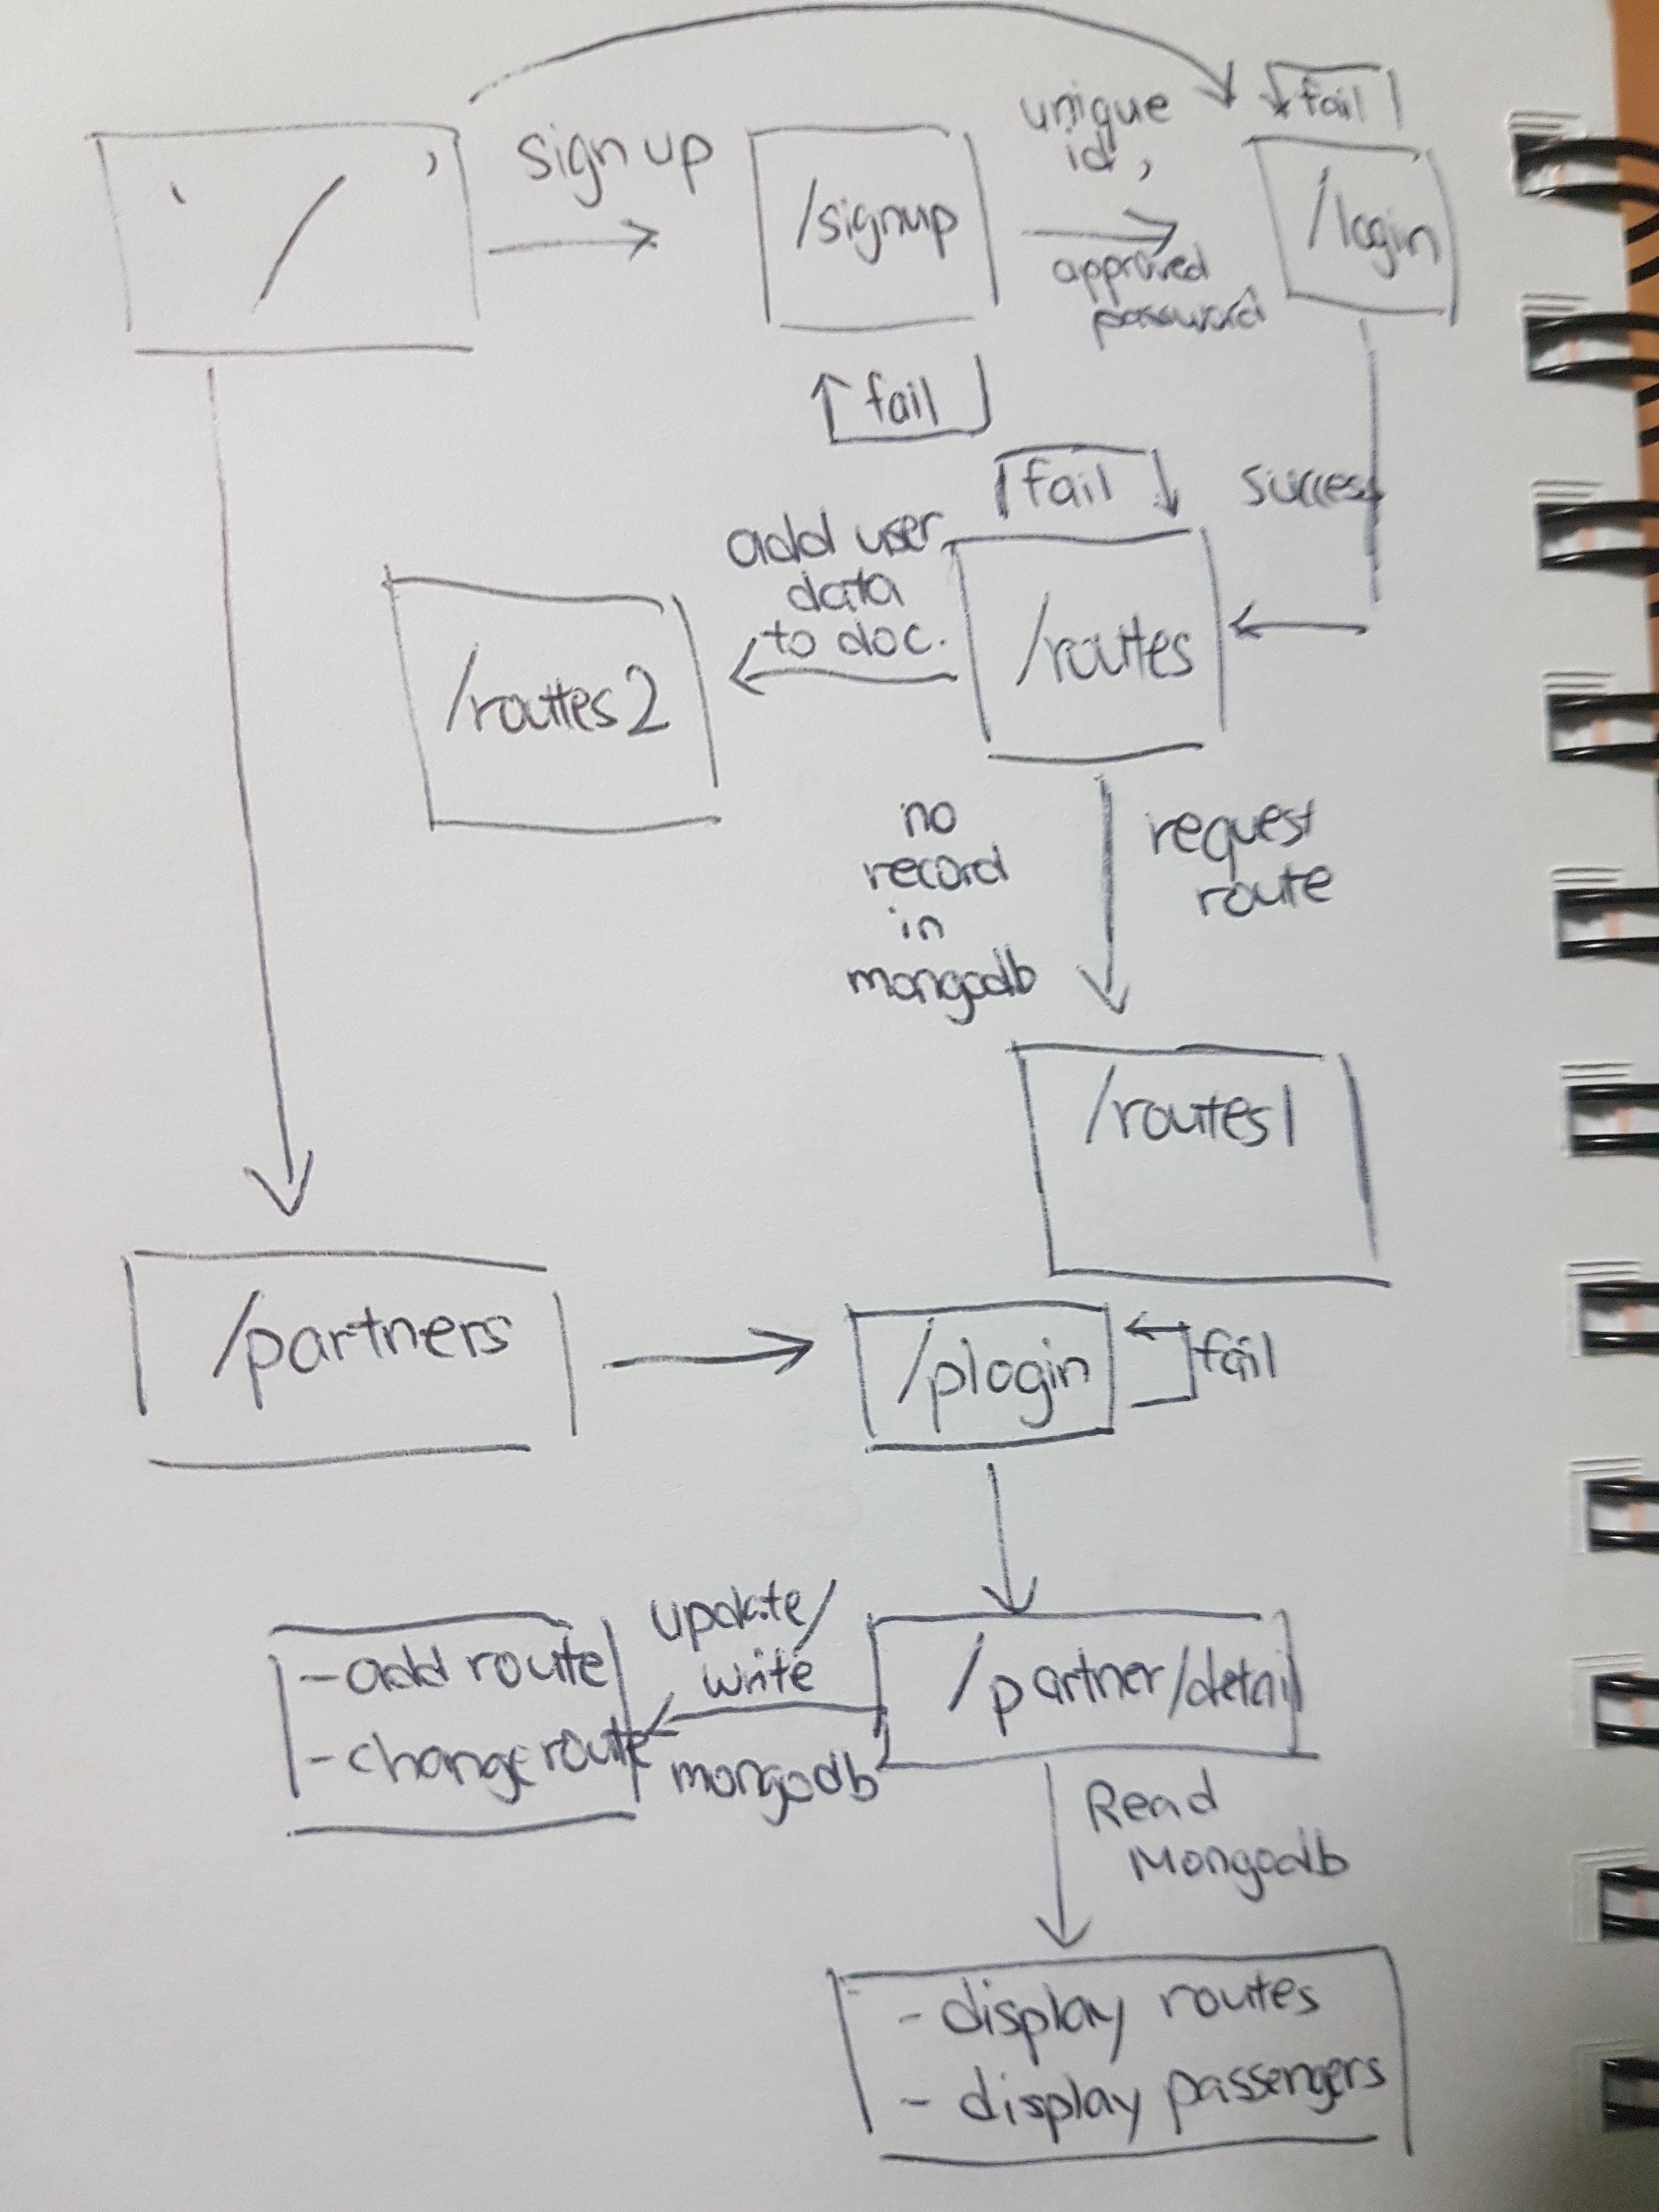 ' / '
sign up
/signup
unique
id,
approved
password
fail
/login
fail
success
fail
/routes
add user
data
to doc.
/routes2
no
record
in
mongodb
request
route
/routes1
/partners
/plogin
fail
/partner/detail
update/
write
mongodb
- add route
- change route
Read
Mongodb
- display routes
- display passengers